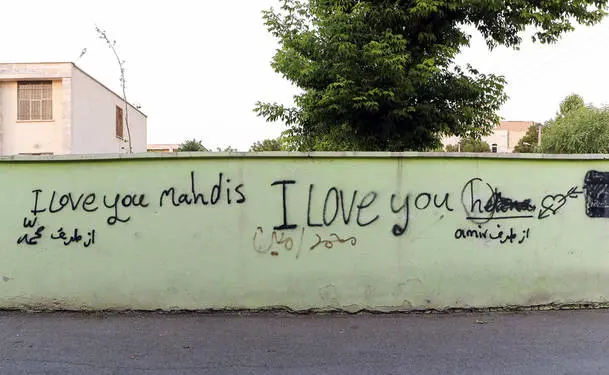 I Love you Mahdis
از طرف محمد
I Love you
2020
از طرف amir